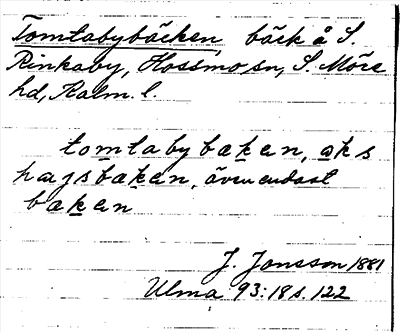 Tomtabybäcken, bäck å S.
Rinkaby, Hossmo sn, S. Möre
hd, Kalm. l.
tomtabybaken, aks
hagsbaken, även endast
baken
J. Jonsson 1881
Ulma 93:18 s. 122